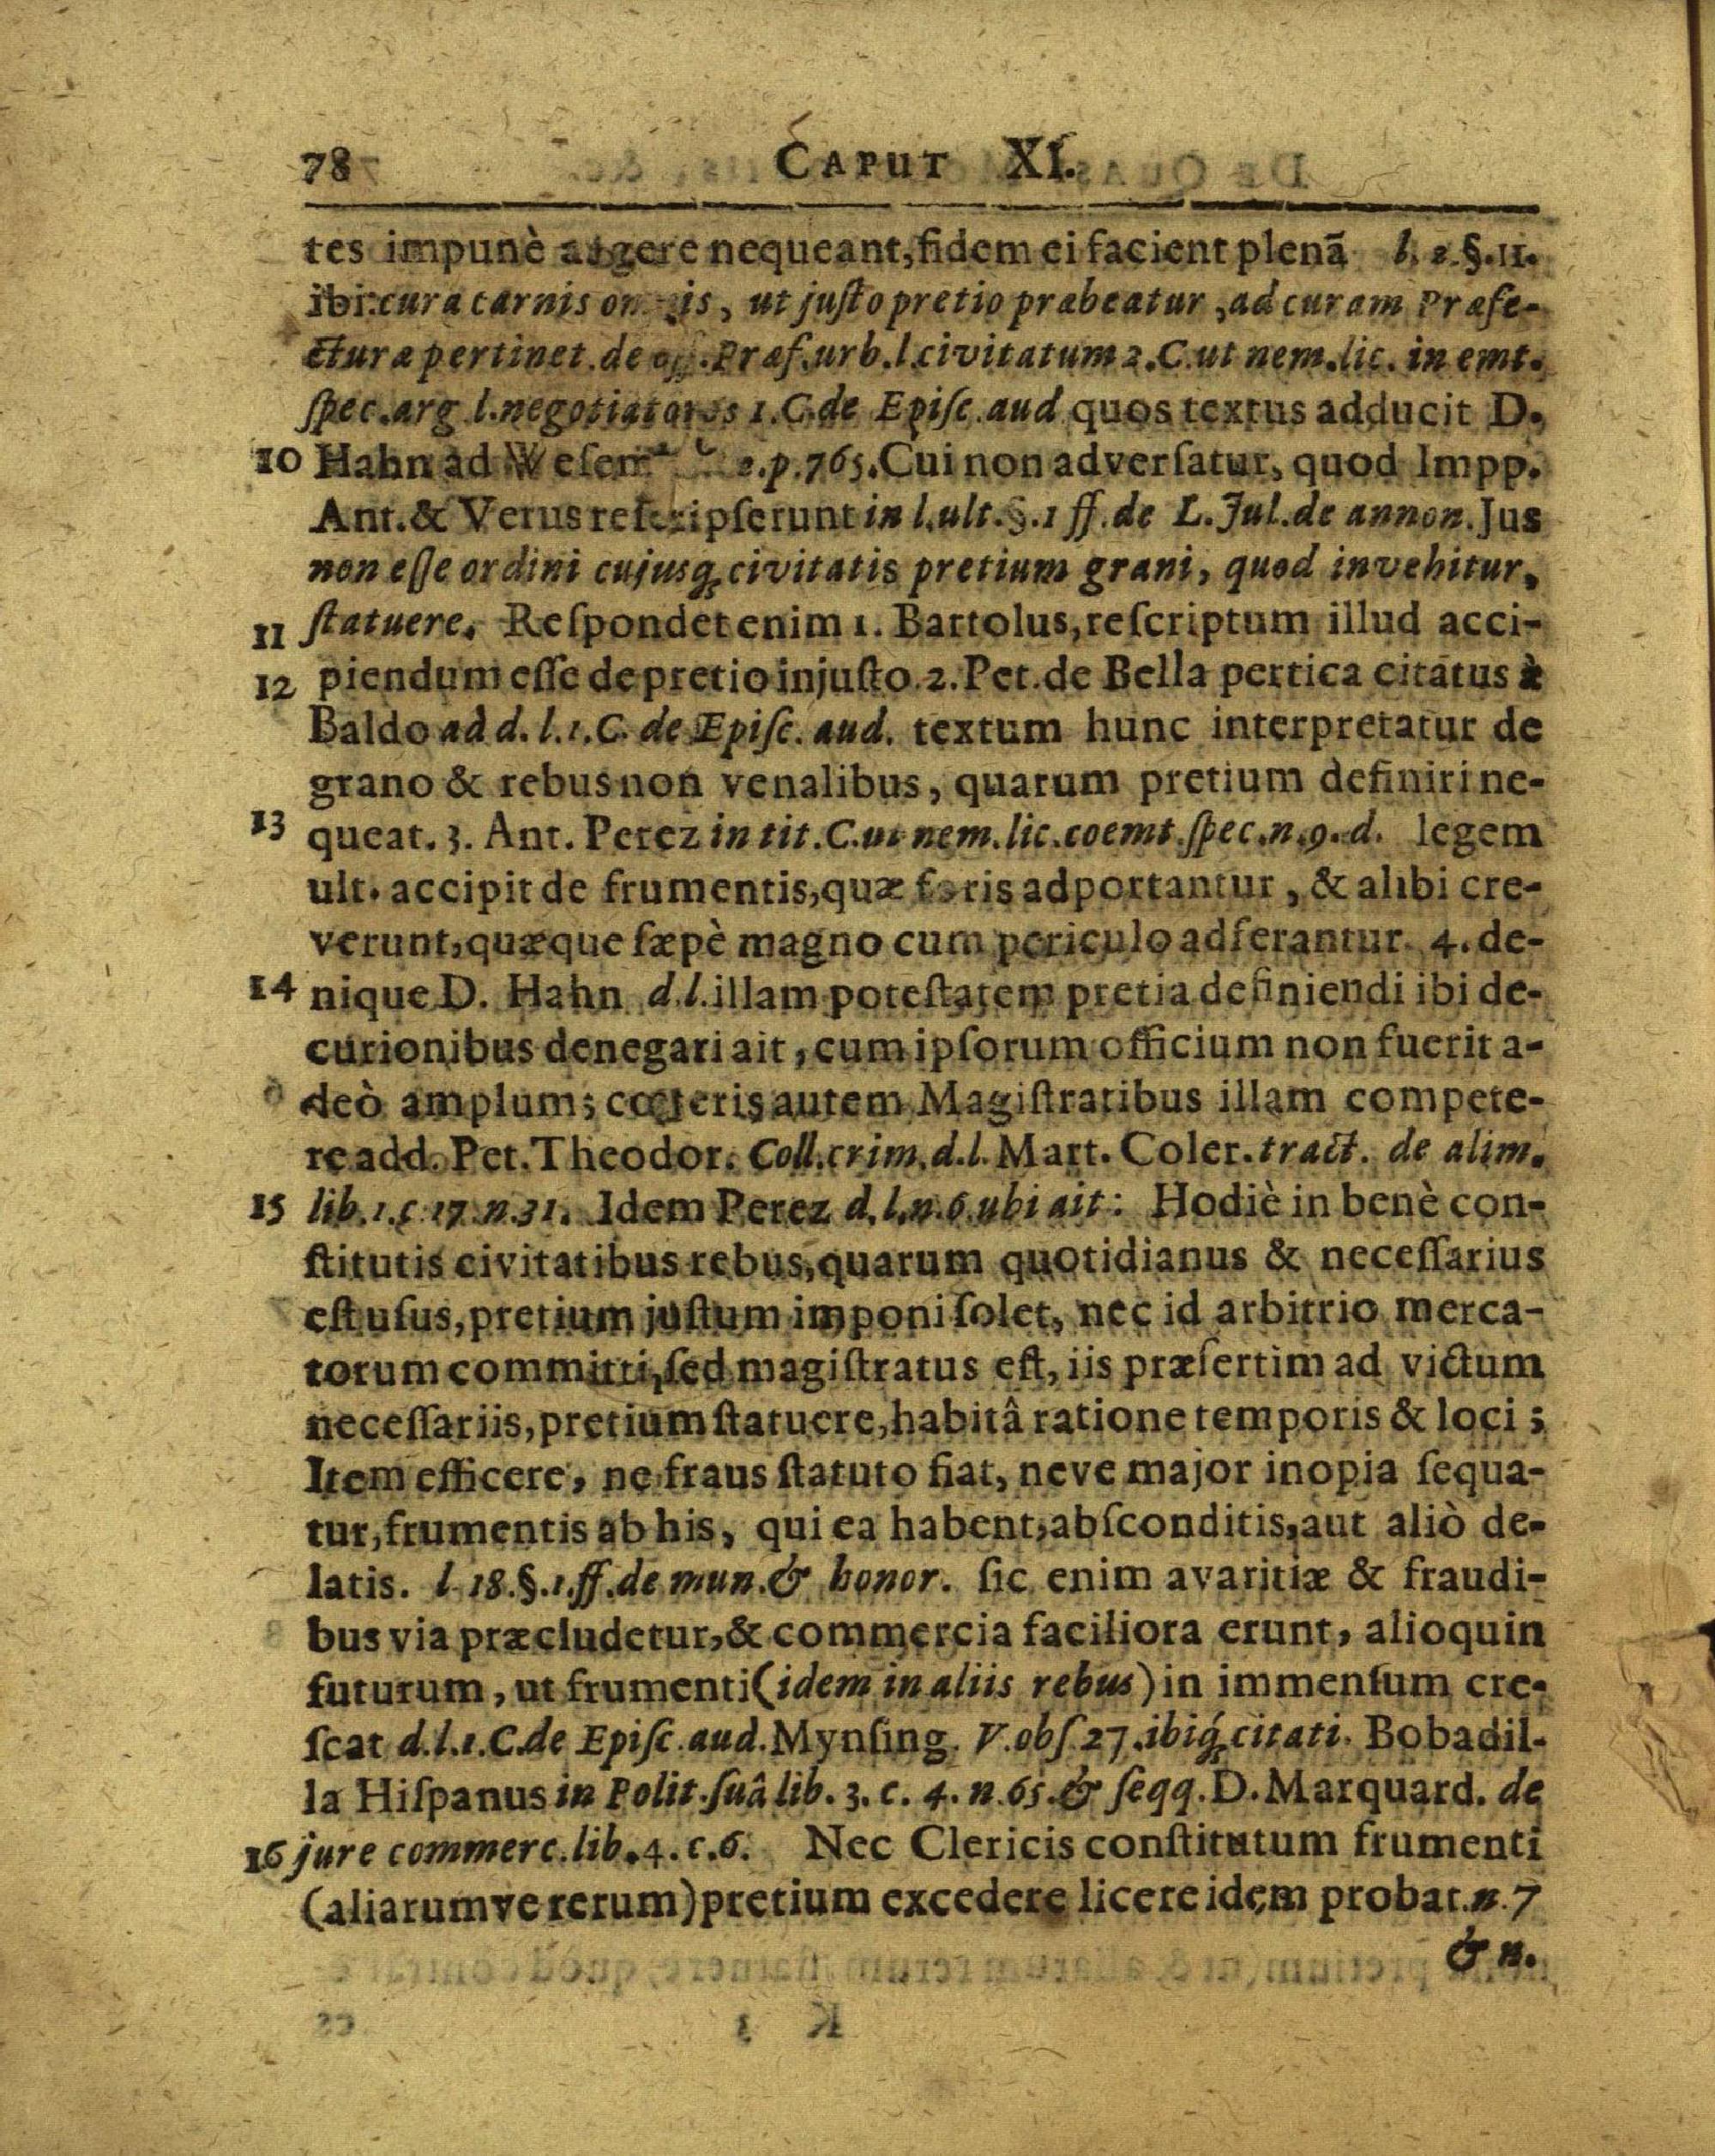 78 CAPUT XI.
tes impunè augere nequeant, fidem ei facient plenā l. 2. §. 11.
ibi: cura carnis omnis, ut juſto pretio præbeatur, ad curam Præfe-
cturæ pertinet. de off. Præf. urb. l. civitatum 2. C. ut nem. lic. in emt.
ſpec. arg l. negotiatores 1. C. de Epiſc. aud quos textus adducit D.
10 Hahn ad Weſem 2. p. 765. Cui non adverſatur, quod Impp.
Ant. & Verus reſcripſerunt in l. ult. §. 1 ff. de L. Jul. de annon. Jus
non eſſe ordini cujusq́; civitatis pretium grani, quod invehitur,
11 ſtatuere. Reſpondet enim 1. Bartolus, reſcriptum illud acci-
12 piendum eſſe de pretio injuſto. 2. Pet. de Bella pertica citatus à
Baldo ad d. l. 1. C. de Epiſc. aud. textum hunc interpretatur de
grano & rebus non venalibus, quarum pretium definiri ne-
13 queat. 3. Ant. Perez in tit. C. ut nem. lic. coemt. ſpec. n. 9. d. legem
ult. accipit de frumentis, quæ foris adportantur, & alibi cre-
verunt, quæque ſæpè magno cum periculo adferantur. 4. de-
14 nique D. Hahn d. l. illam poteſtatem pretia definiendi ibi de-
curionibus denegari ait, cum ipſorum officium non fuerit a-
deò amplum; cœteris autem Magiſtratibus illam compete-
re add. Pet. Theodor. Coll. crim. d. l. Mart. Coler. tract. de alim.
15 lib. 1. c. 17. n. 31. Idem Perez d. l. n. 6. ubi ait: Hodiè in benè con-
ſtitutis civitatibus rebus, quarum quotidianus & neceſſarius
eſt uſus, pretium juſtum imponi ſolet, nec id arbitrio merca-
torum committi, ſed magiſtratus eſt, iis præſertim ad victum
neceſſariis, pretium ſtatuere, habitâ ratione temporis & loci;
Item efficere, ne fraus ſtatuto fiat, neve major inopia ſequa-
tur, frumentis ab his, qui ea habent, abſconditis, aut aliò de-
latis. l. 18. §. 1. ff. de mun. & honor. ſic enim avaritiæ & fraudi-
bus via præcludetur, & commercia faciliora erunt, alioquin
futurum, ut frumenti (idem in aliis rebus) in immenſum cre-
ſcat d. l. 1. C. de Epiſc. aud. Mynſing. V. obſ 27. ibiq́; citati. Bobadil-
la Hiſpanus in Polit. ſuâ lib. 3. c. 4. n. 65. & ſeqq. D. Marquard. de
16 jure commerc. lib. 4. c. 6. Nec Clericis conſtitutum frumenti
(aliarumve rerum) pretium excedere licere idem probat. n. 7
& n.